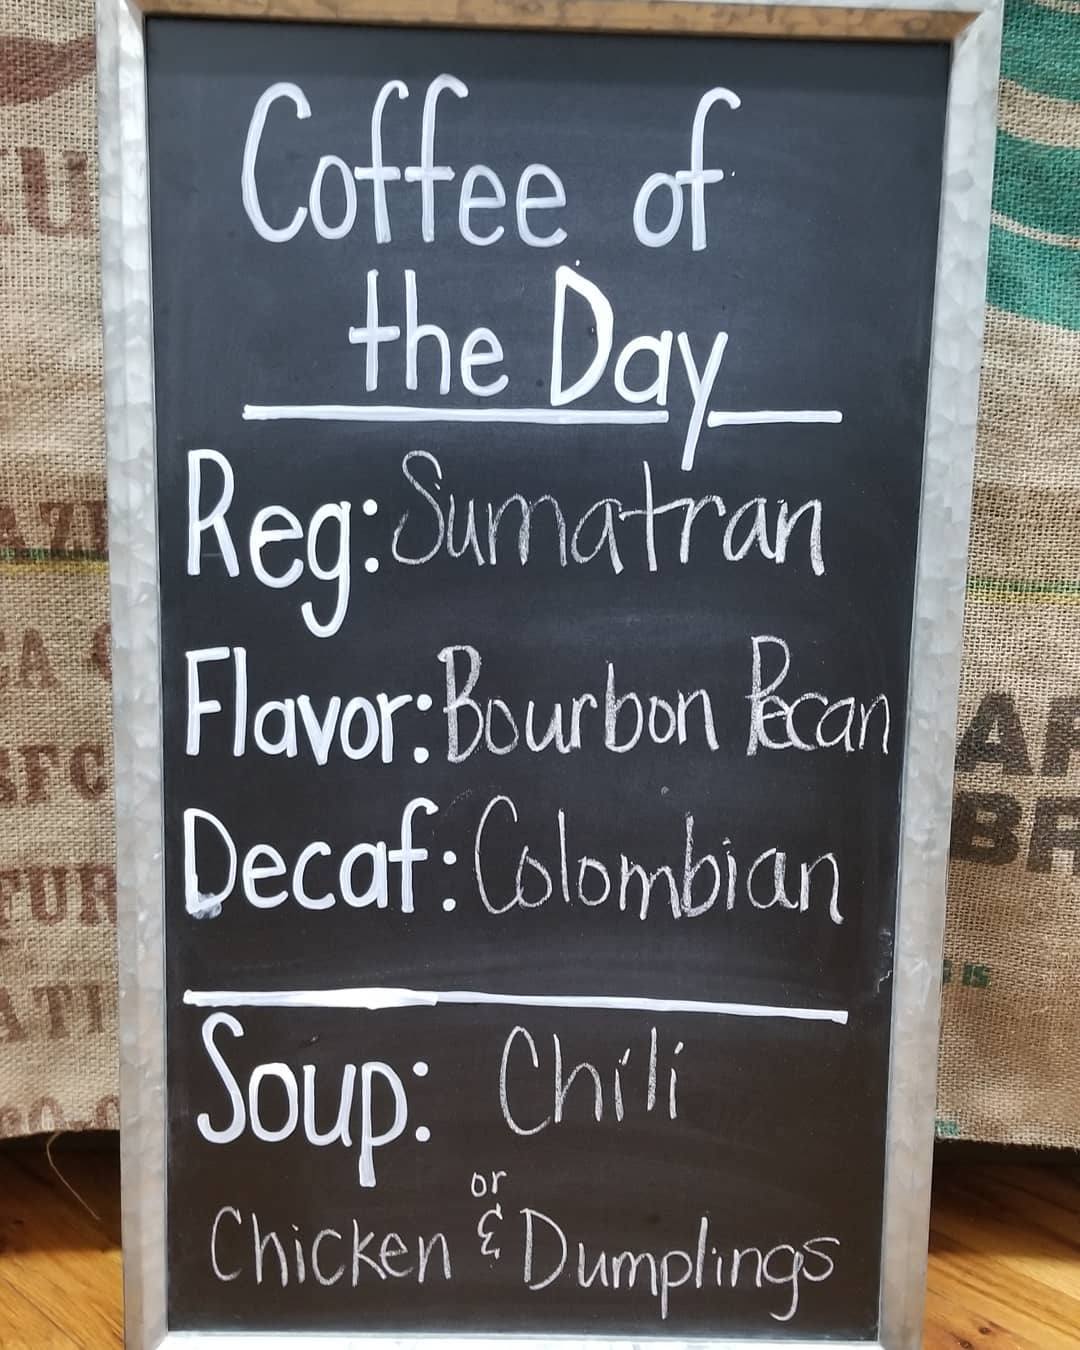 Coffee of
the Day
Reg: Sumatran
Flavor: Bourbon Pecan
Decaf: Colombian
Soup: Chili
or
Chicken & Dumplings
AF
BR
FUR
ATI
SFC
IS